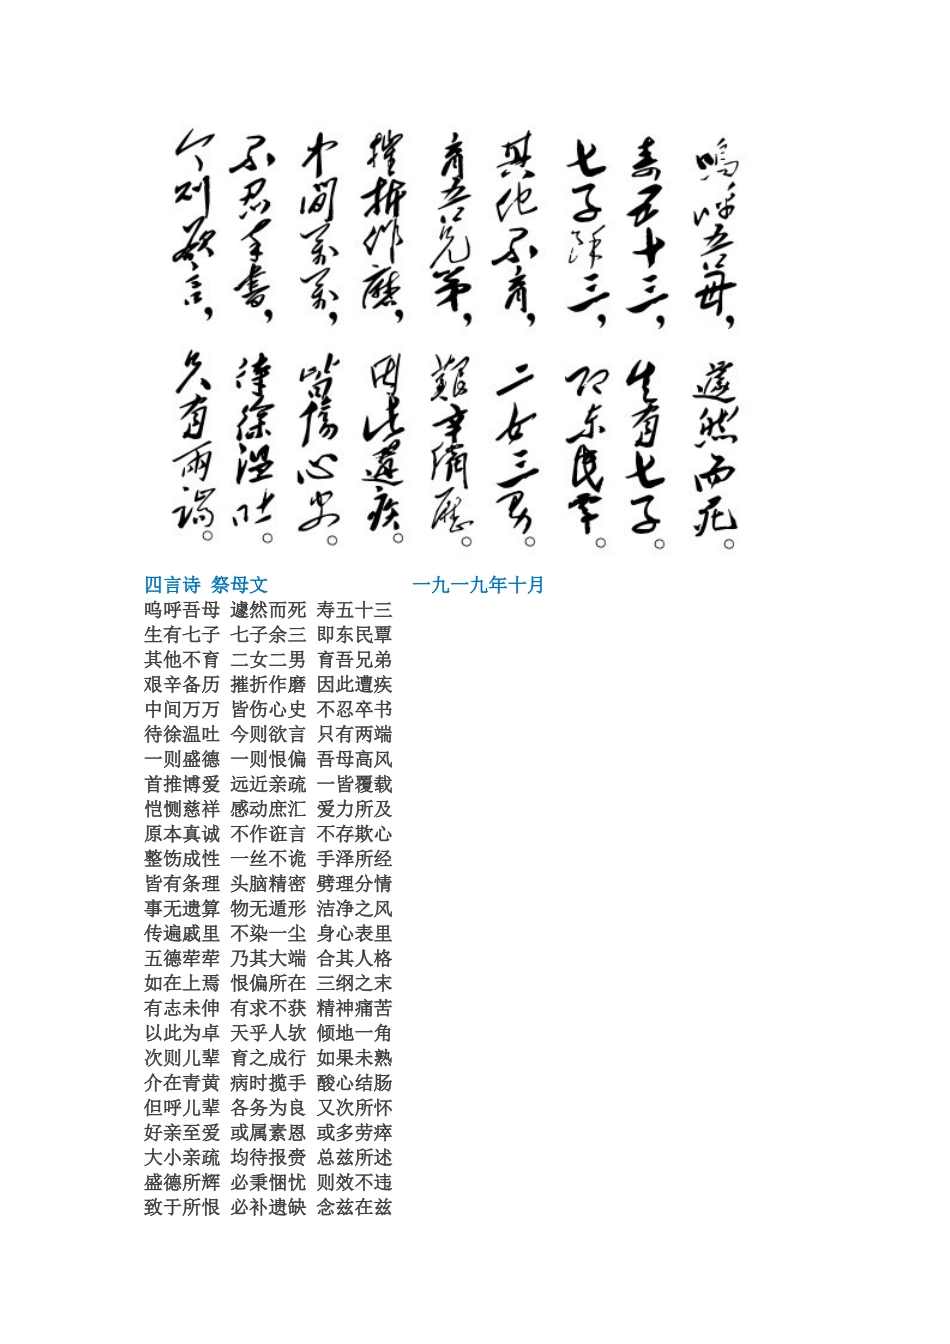 嗚呼吾母，
遽然而死。
寿五十三，
生有七子。
七子餘三，
即东民覃。
其他不育，
二女三男。
育吾兄弟，
艱辛備歷。
摧折作磨，
因此遘疾。
中間萬萬，
皆傷心史。
不忍卒書，
待徐温吐。
今則欲言，
只有兩端。
四言诗 祭母文 一九一九年十月
呜呼吾母 遽然而死 寿五十三
生有七子 七子余三 即东民覃
其他不育 二女二男 育吾兄弟
艰辛备历 摧折作磨 因此遭疾
中间万万 皆伤心史 不忍卒书
待徐温吐 今则欲言 只有两端
一则盛德 一则恨偏 吾母高风
首推博爱 远近亲疏 一皆覆载
恺恻慈祥 感动庶汇 爱力所及
原本真诚 不作诳言 不存欺心
整饬成性 一丝不诡 手泽所经
皆有条理 头脑精密 劈理分情
事无遗算 物无遁形 洁净之风
传遍戚里 不染一尘 身心表里
五德荦荦 乃其大端 合其人格
如在上焉 恨偏所在 三纲之末
有志未伸 有求不获 精神痛苦
以此为卓 天乎人欤 倾地一角
次则儿辈 育之成行 如果未熟
介在青黄 病时揽手 酸心结肠
但呼儿辈 各务为良 又次所怀
好亲至爱 或属素恩 或多劳瘁
大小亲疏 均待报赍 总兹所述
盛德所辉 必秉悃忱 则效不违
致于所恨 必补遗缺 念兹在兹